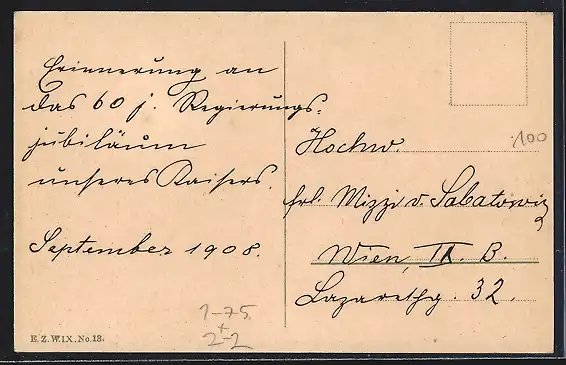 Erinnerung an
das 60 j. Regierungs-
jubiläum
unseres Kaisers.
September 1908.
Hochw.
frl. Mizzi v. Sabatowicz
Wien, IX. B.
Lazarethg. 32.
.100
1-75
+
2-2
E. Z. W. IX, No. 18.